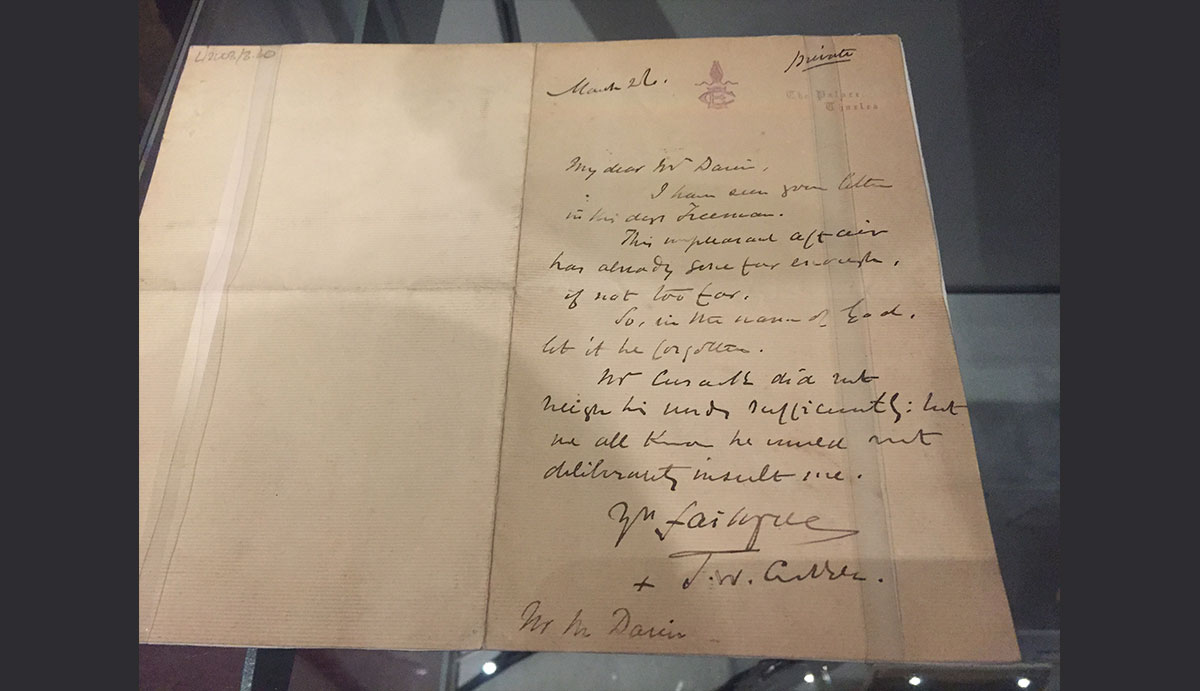 March 26.
private
The Palace,
Thurles
My dear Mr Davin,
I have seen your letter
in this days Freeman.
This unpleasant affair
has already gone far enough,
if not too far.
So, in the name of God,
let it be forgotten.
Mr Cusack did not
weigh his words sufficiently: but
we all know he would not
deliberately insult me.
Yrs faithfully
+ T. W. Croke.
Mr M Davin